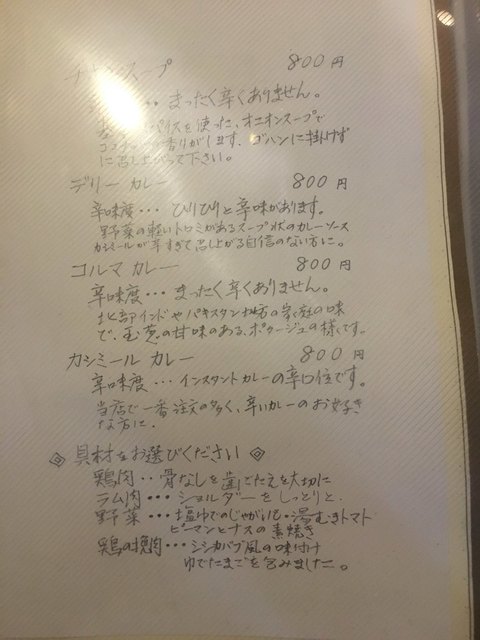 スープ 800円
・・・まったく辛くありません。
スパイスを使った、オニオンスープで
ココナッツの香りがします。ゴハンに掛けず
に召し上がって下さい。
デリー カレー 800円
辛味度・・・ ぴりぴりと辛味があります。
野菜の軽いトロミがあるスープ状のカレーソース
カシミールが辛すぎて召し上がる自信のない方に。
コルマ カレー 800円
辛味度・・・まったく辛くありません。
北部インドやパキスタン地方の家庭の味
で、玉葱の甘味のある、ポタージュの様です。
カシミール カレー 800円
辛味度・・・インスタントカレーの辛口位です。
当店で一番注文の多く、辛いカレーのお好き
な方に.
◎具材をお選びください◎
鶏肉・・骨なしを歯ごたえを大切に
ラム肉・・・ショルダーをしっとりと.
野菜・・・塩ゆでのじゃがいも・湯むきトマト
ピーマンとナスの素焼き
鶏の挽肉・・・シシカバブ風の味付け
ゆでたまごを包みました。